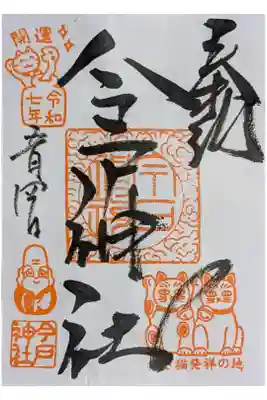 奉拝
今戸神社
開運
令和
七年
猫発祥の地
今戸
神社